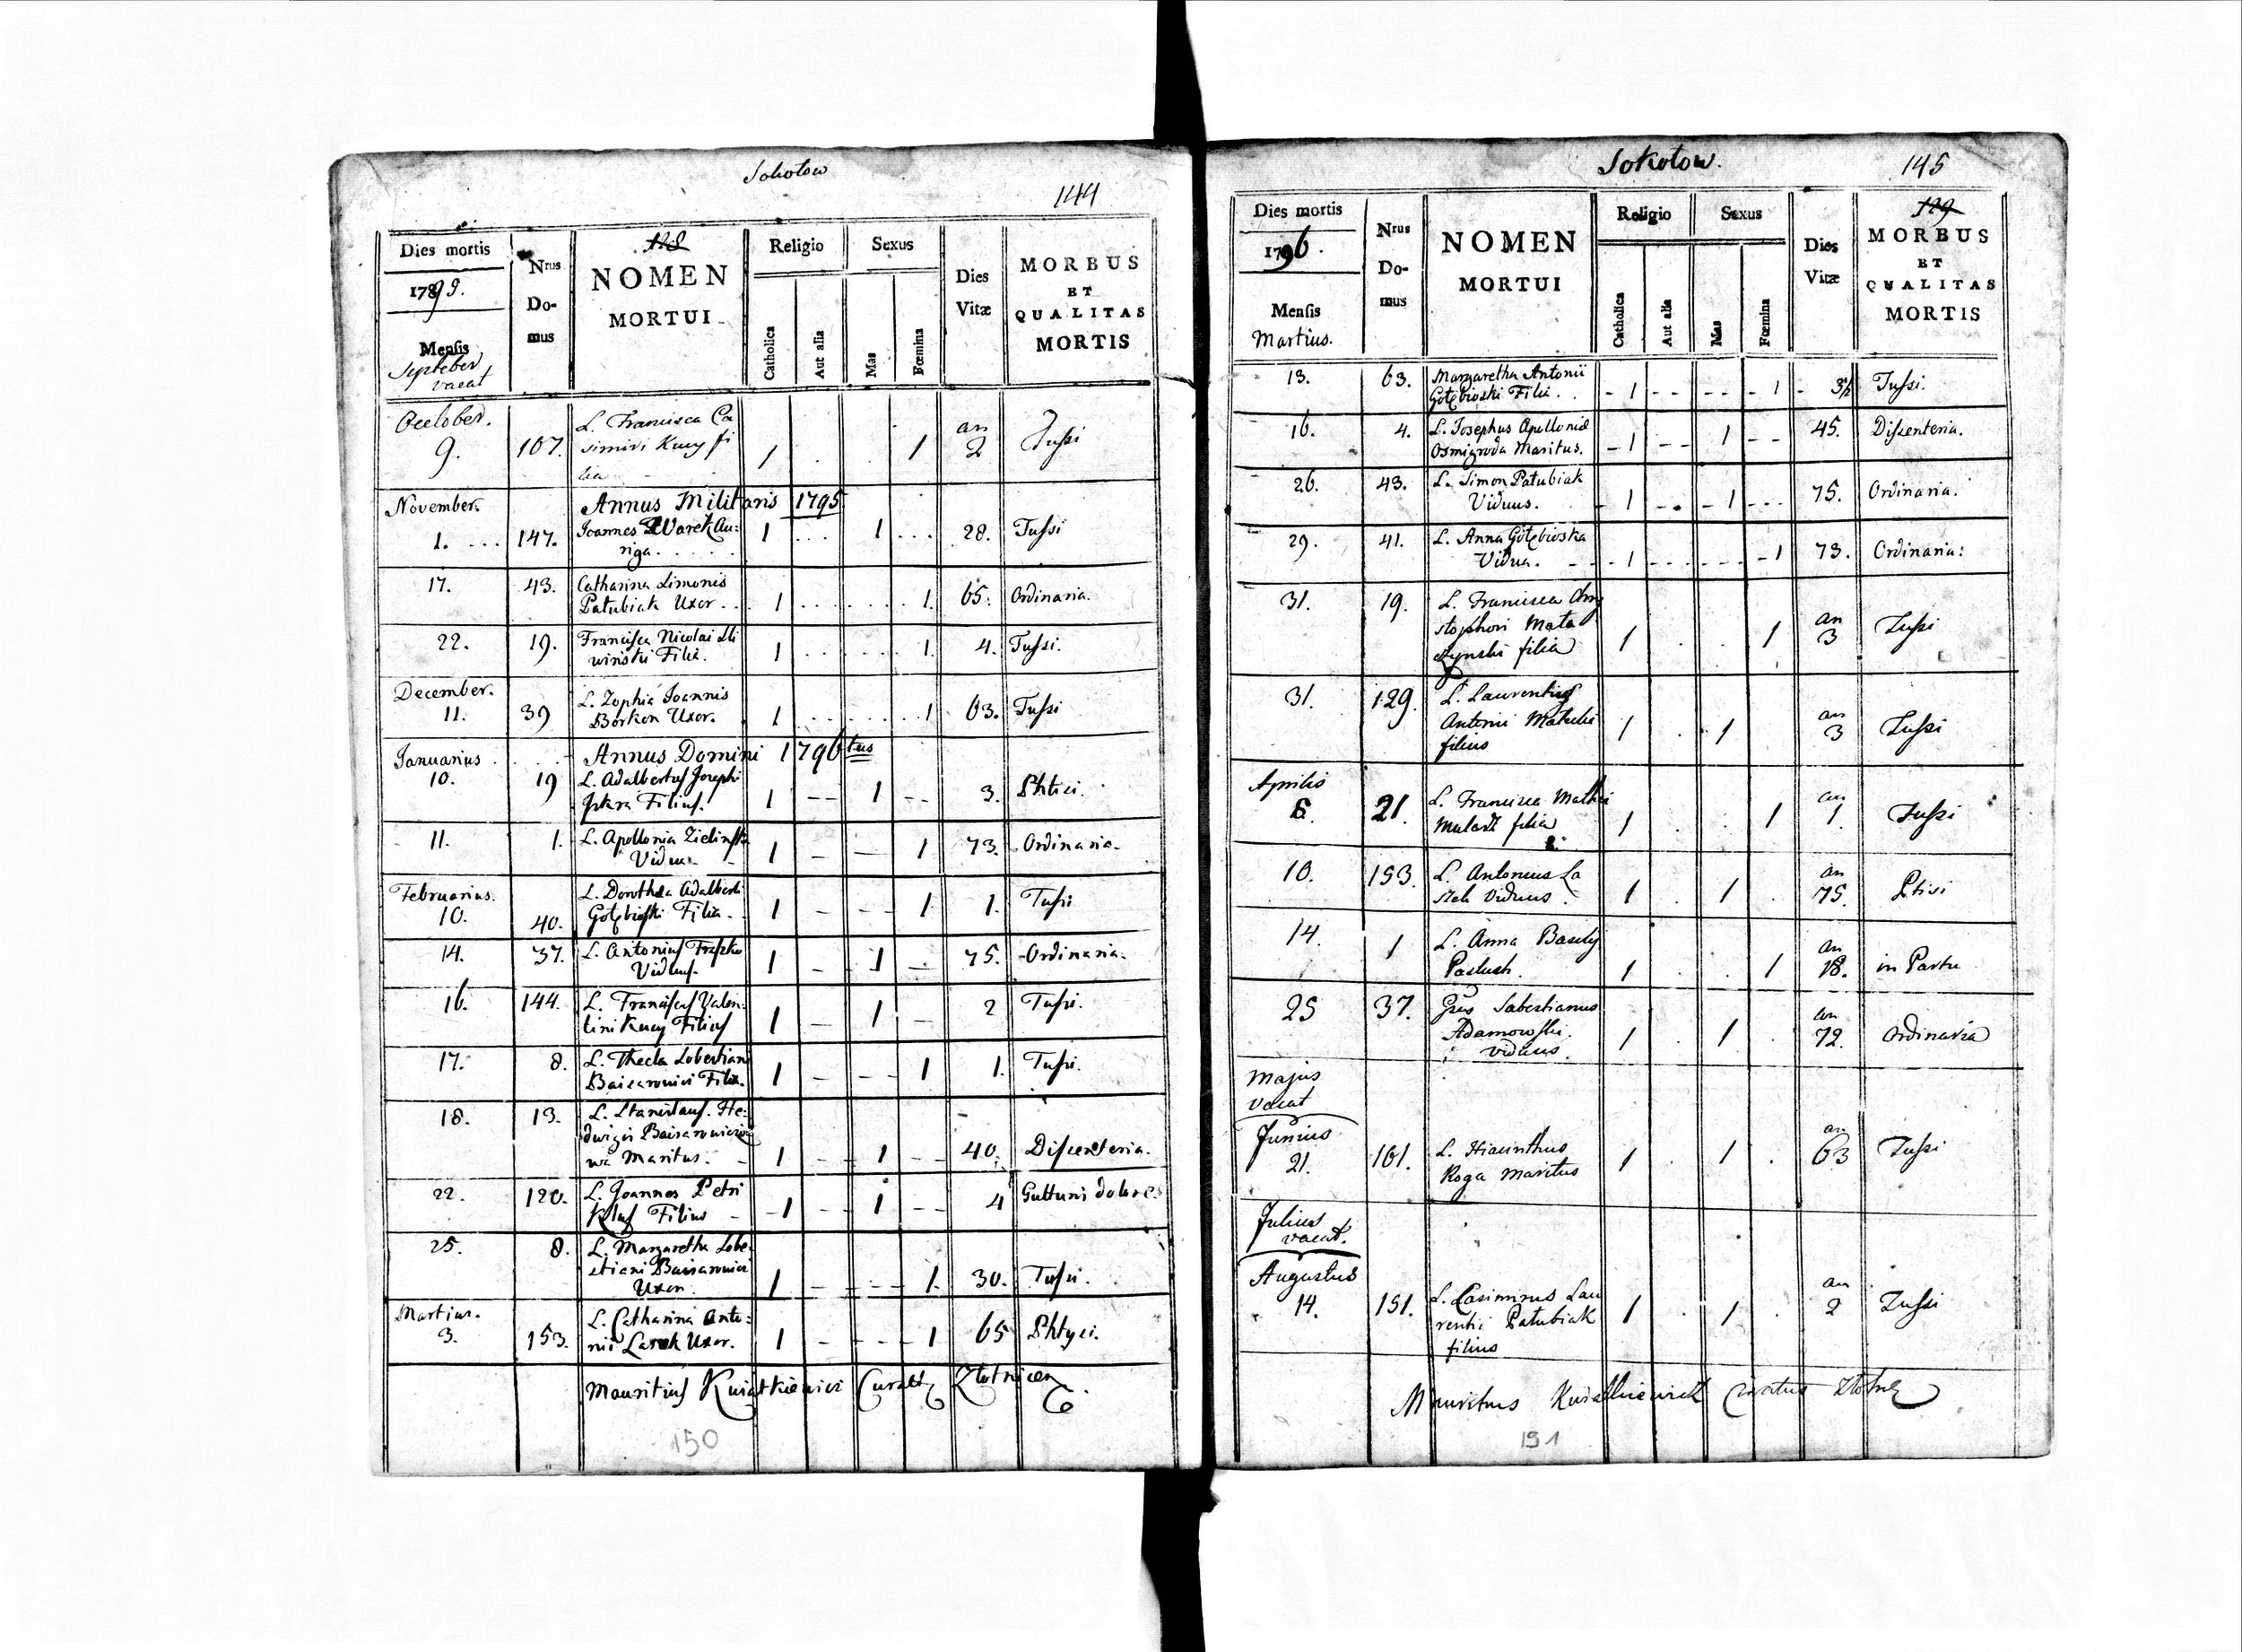 Sokolow
144
Dies mortis
1795.
Mensis
September
vacat
Nrus
Do-
mus
128
NOMEN
MORTUI
Religio
Catholica
Aut alia
Sexus
Mas
Fœmina
Dies
Vitæ
MORBUS
ET
QUALITAS
MORTIS
October.
9. 107. L. Francisca Ca
simiri Kucy fi
lia 1 1 an 2 Tussi
November. Annus Militaris 1795
1. 147. Joannes Warek Au:
riga. 1 1 28. Tussi
17. 43. Catharina Simonis
Patubiak Uxor. 1 1. 65. Ordinaria.
22. 19. Francisca Nicolai Sli
winski Filia. 1 1. 4. Tussi.
December.
11. 39 L. Zophia Joannis
Borkon Uxor. 1 1 63. Tussi
Januarius. Annus Domini 1796tus
10. 19 L. Adalbertus Josephi
Filius. 1 1 3. Phtisi.
11. 1. L. Apollonia Zielinska
Vidua 1 1 73. Ordinaria.
Februarius.
10. 40. L. Dorothea Adalberti
Gołębioski Filia. 1 1 1. Tussi
14. 37. L. Antonius Fraszka
Viduus. 1 1 75. Ordinaria.
16. 144. L. Franciscus Valen:
tini Kucy Filius 1 1 2 Tussi.
17. 8. L. Thecla Sobestiani
Baiearowici Filia. 1 1 1. Tussi.
18. 13. L. Stanislaus. He:
dwigis
Maritus. 1 1 40. Dissenteria.
22. 120. L. Joannes Petri
Klus Filius 1 1 4 Gutturis dolore.
25. 8. L. Margaretha Sobe:
stiani
Uxor. 1 1. 30. Tussi.
Martius.
3. 153. L. Catharina Anto:
nii Uxor. 1 1 65 Phtysi.
Mauritius Kwiatkiewicz Curatus Zlotnicen
150
Sokołow.
145
Dies mortis
1796.
Mensis
Martius.
Nrus
Do-
mus
NOMEN
MORTUI
Religio
Catholica
Aut alia
Sexus
Mas
Fœmina
Dies
Vitæ
129
MORBUS
ET
QUALITAS
MORTIS
13. 63. Margaretha Antonii
Gołębioski Filia. 1 1 3½ Tussi.
16. 4. L. Josephus Apolloniæ
Osmigroda Maritus. 1 1 45. Dissenteria.
26. 43. L. Simon Patubiak
Viduus. 1 1 75. Ordinaria.
29. 41. L. Anna Gołębioska
Vidua. 1 1 73. Ordinaria:
31. 19. L. Francisca Chry
stophori Mata
szynski filia 1 1 an 3 Tussi
31. 129. L. Laurentius
Antonii Matuski
filius 1 1 an 3 Tussi
Aprilis
6. 21. L. Francisca Mathei
filia 1 1 an 1. Tussi
10. 153. L. Antonius La
Viduus. 1 1 an 75. Ptisi
14. 1 L. Anna Basily
Pastuch. 1 1 an 18. in Partu
25 37. Gsus Sabestianus
Adamowski.
viduus. 1 1 an 72. Ordinaria
Majus
vacat
Junius
21. 161. L. Hiacinthus
Roga Maritus 1 1 an 63 Tussi
Julius
vacat.
Augustus
14. 151. L. Casimirus Lau
rentii Patubiak
filius 1 1 an 2 Tussi
Mauritius Kwiatkiewicz Curatus
151